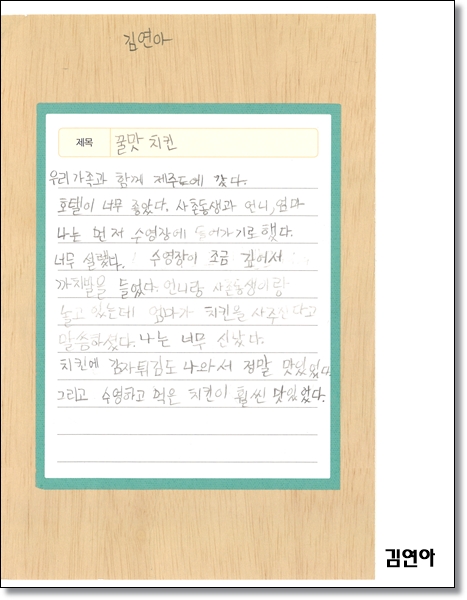 김연아
제목 꿀맛 치킨
우리 가족과 함께 제주도에 갔다.
호텔이 너무 좋았다. 사촌동생과 언니, 엄마
나는 먼저 수영장에 들어가기로 했다.
너무 설렜다. 수영장이 조금 깊어서
까치발을 들었다. 언니랑 사촌동생이랑
놀고 있는데 엄마가 치킨을 사주신다고
말씀하셨다. 나는 너무 신났다.
치킨에 감자튀김도 나와서 정말 맛있었다.
그리고 수영하고 먹은 치킨이 훨씬 맛있었다.
김연아